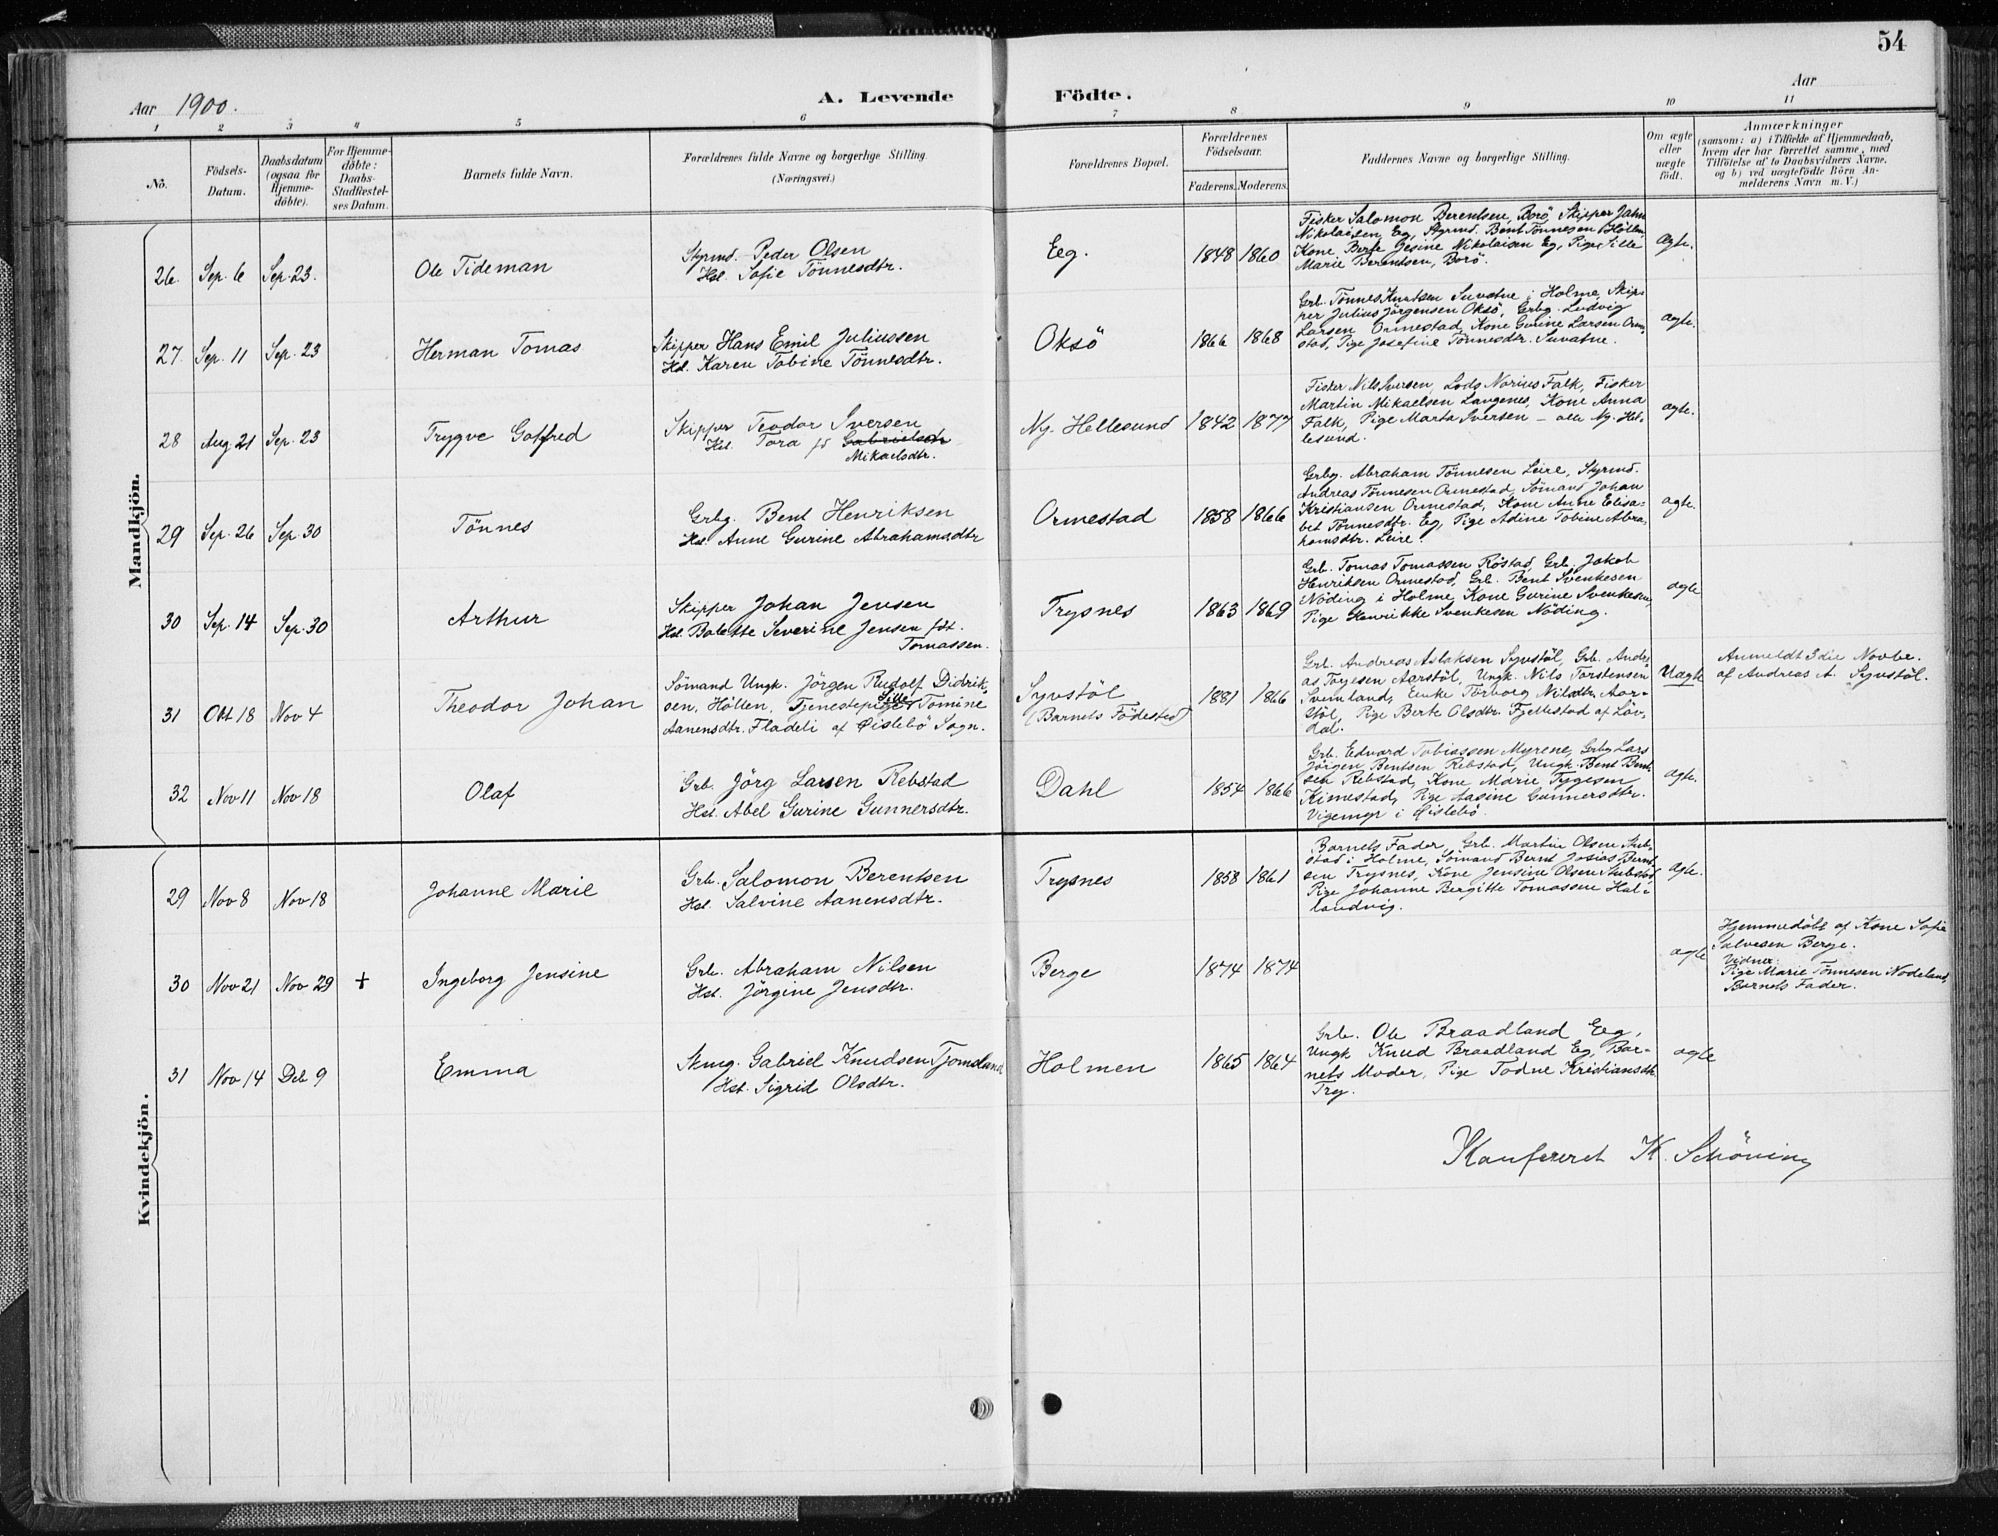 54
Aar 1900.
A. Levende Födte.
Aar
1 2 3 4 5 6 7 8 9 10 11
No.
Födsels-
Datum.
Daabsdatum
(ogsaa for
Hjemme-
döbte).
For Hjemme-
döbte:
Daabs-
Stadfæstel-
ses Datum.
Barnets fulde Navn.
Forældrenes fulde Navne og borgerlige Stilling.
(Næringsvei.)
Forældrenes Bopæl.
Forældrenes
Födselsaar.
Faderens. Moderens.
Faddernes Navne og borgerlige Stilling.
Om ægte
eller
uægte
födt.
Anmærkninger
(saasom: a) i Tilfælde af Hjemmedaab,
hvem der har forrettet samme, med
Tilföielse af to Daabsvidners Navne,
og b) ved uægtefödte Börn An-
melderens Navn m. V.)
Mandkjön.
26. Sep. 6 Sep. 23 Ole Tideman
Styrmd. Peder Olsen
Hst. Sofie Tönnesdtr.
Eeg. 1848 1860
Fisker Salomon Berentsen, Borö, Skipper Jahn
Nikolaisen, Eg, Styrmd. Bent Tönnesen Höllen,
Kone Berte Gesine Nikolaisen Eg, Pige Tille
Marie Berentsen, Borö.
ægte.
27. Sep. 11 Sep. 23 Herman Tomas
Skipper Hans Emil Juliussen
Hst. Karen Tobine Tönnesdtr.
Oksö 1866 1868
Grb. Tönnes Knutsen Suvatne i Holme, Skip-
per Julius Jörgensen Oksö, Grbg. Ludvig
Larsen Ormestad, Kone Gurine Larsen Orme-
stad, Pige Josefine Tönnesdtr. Suvatne.
ægte.
28 Aug. 21 Sep. 23 Trygve Goffred
Skipper Teodor Iversen
Hst. Tora f. Gabrielsen
Mikaelsdtr.
Ny-Hellesund 1842 1877
Fisker Nils Iversen, Lods Norius Falk, Fisker
Martin Mikaelsen Langenes, Kone Anna
Falk, Pige Marta Iversen – alle Ny-Hel-
lesund.
ægte.
29 Sep. 26 Sep. 30 Tönnes
Grbg. Bent Henriksen
Hst. Anne Gurine Abrahamsdtr
Ormestad 1858 1866
Grbg. Abraham Tönnesen Leire, Styrmd.
Andreas Tönnesen Ormestad, Sömand Johan
Kristiansen Ormestad, Kone Anne Elisa-
bet Tönnesdtr. Eg, Pige Adine Tobine Abra-
hamsdtr. Leire.
ægte.
30 Sep. 14 Sep. 30 Arthur
Skipper Johan Jensen
Hst. Bolette Severine Jensen født.
Tomassen.
Trysnes 1863 1869
Grb. Tomas Tomassen Röstad, Grb. Jakob
Henriksen Ormestad, Grb. Bent Svenkesen
Nöding i Holme, Kone Gurine Svenkesen,
Pige Henrikke Svenkesen Nöding.
ægte
31 Okt 18 Nov 4 Theodor Johan
Sömand Ungk. Jörgen Rudolf Didrik-
sen, Höllen, Tjenestepige Tomine
Aanensdtr. Fladeli af Øislebö Sogn.
Syvstöl
(Barnets Födested) 1881 1866
Grb. Andreas Aslaksen Syvstöl, Grb. Andre-
as Tagesen Aarstöl, Ungk. Nils Torstensen
Svenland, Enke Torborg Nilsdtr. Aar-
stöl, Pige Berte Olsdtr. Fjellestad af Löv-
dal.
Uægte
Anmeldt 3die Novbe.
af Andreas A. Syvstöl.
32 Nov 11 Nov 18 Olaf
Grb. Jörg Larsen Rebstad
Hst. Abel Gurine Gunnersdtr.
Dahl 1854 1866
Grb. Edvard Tobiassen Myrene, Grbg Lars
Jörgen Bentsen Rebstad, Ungk. Bent Bent-
sen Rebstad, Kone Marie Tygesen
Kimestad, Pige Aasine Gunnersdtr.
Vigemyr i Øislebö.
ægte.
Kvindekjön.
29 Nov 8 Nov 18 Johanne Marie
Grb. Salomon Berentsen
Hst. Salvine Aanensdtr.
Trysnes 1858 1861
Barnets Fader, Grb. Martin Olsen Stub-
stad i Holme, Sömand Bernt Josias Bernt-
sen Trysnes, Kone Jensine Olsen Stubstad,
Pige Johanne Bergitte Tomassen Hal-
landvig.
ægte.
30 Nov 21 Nov 29 + Ingeborg Jensine
Grb. Abraham Nilsen
Hst. Jörgine Jensdtr.
Berge 1874 1874
ægte
Hjemmedöbt af Kone Sofie
Salvesen Berge.
Vidner:
Pige Marie Tönnesen Nodeland,
Barnets Fader.
31 Nov 14 Deb 9 Emma
Skmg. Gabriel Knudsen Tjomsland
Hst. Sigrid Olsdtr.
Holmen 1865 1864
Grb. Ole Braadland Eeg,
Ungk Knud Braadland Eg, Bar-
nets Moder, Pige Todne Kristiansdtr.
Try.
ægte
Konfereret K. Schöning